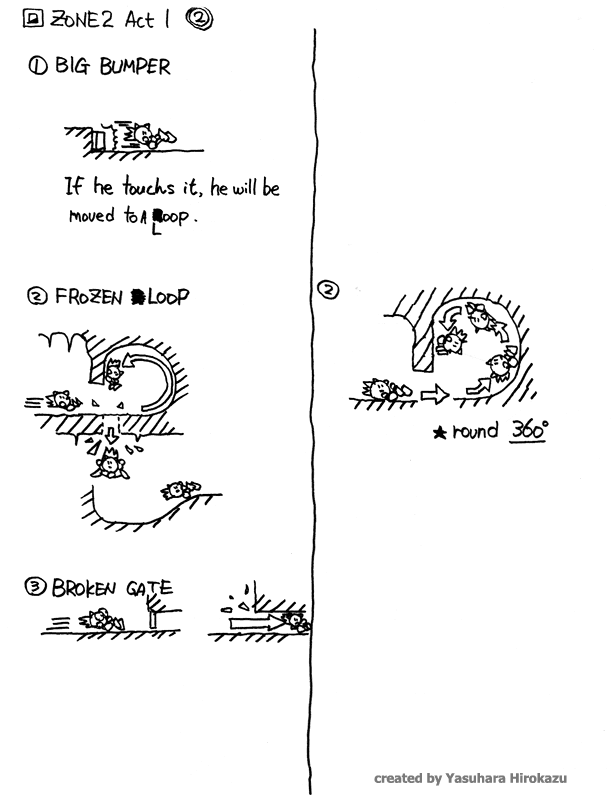 ZONE2 Act 1 ②
① BIG BUMPER
If he touchs it, he will be
moved to A Loop.
② FROZEN LOOP
③ BROKEN GATE
②
★ round 360°
created by Yasuhara Hirokazu